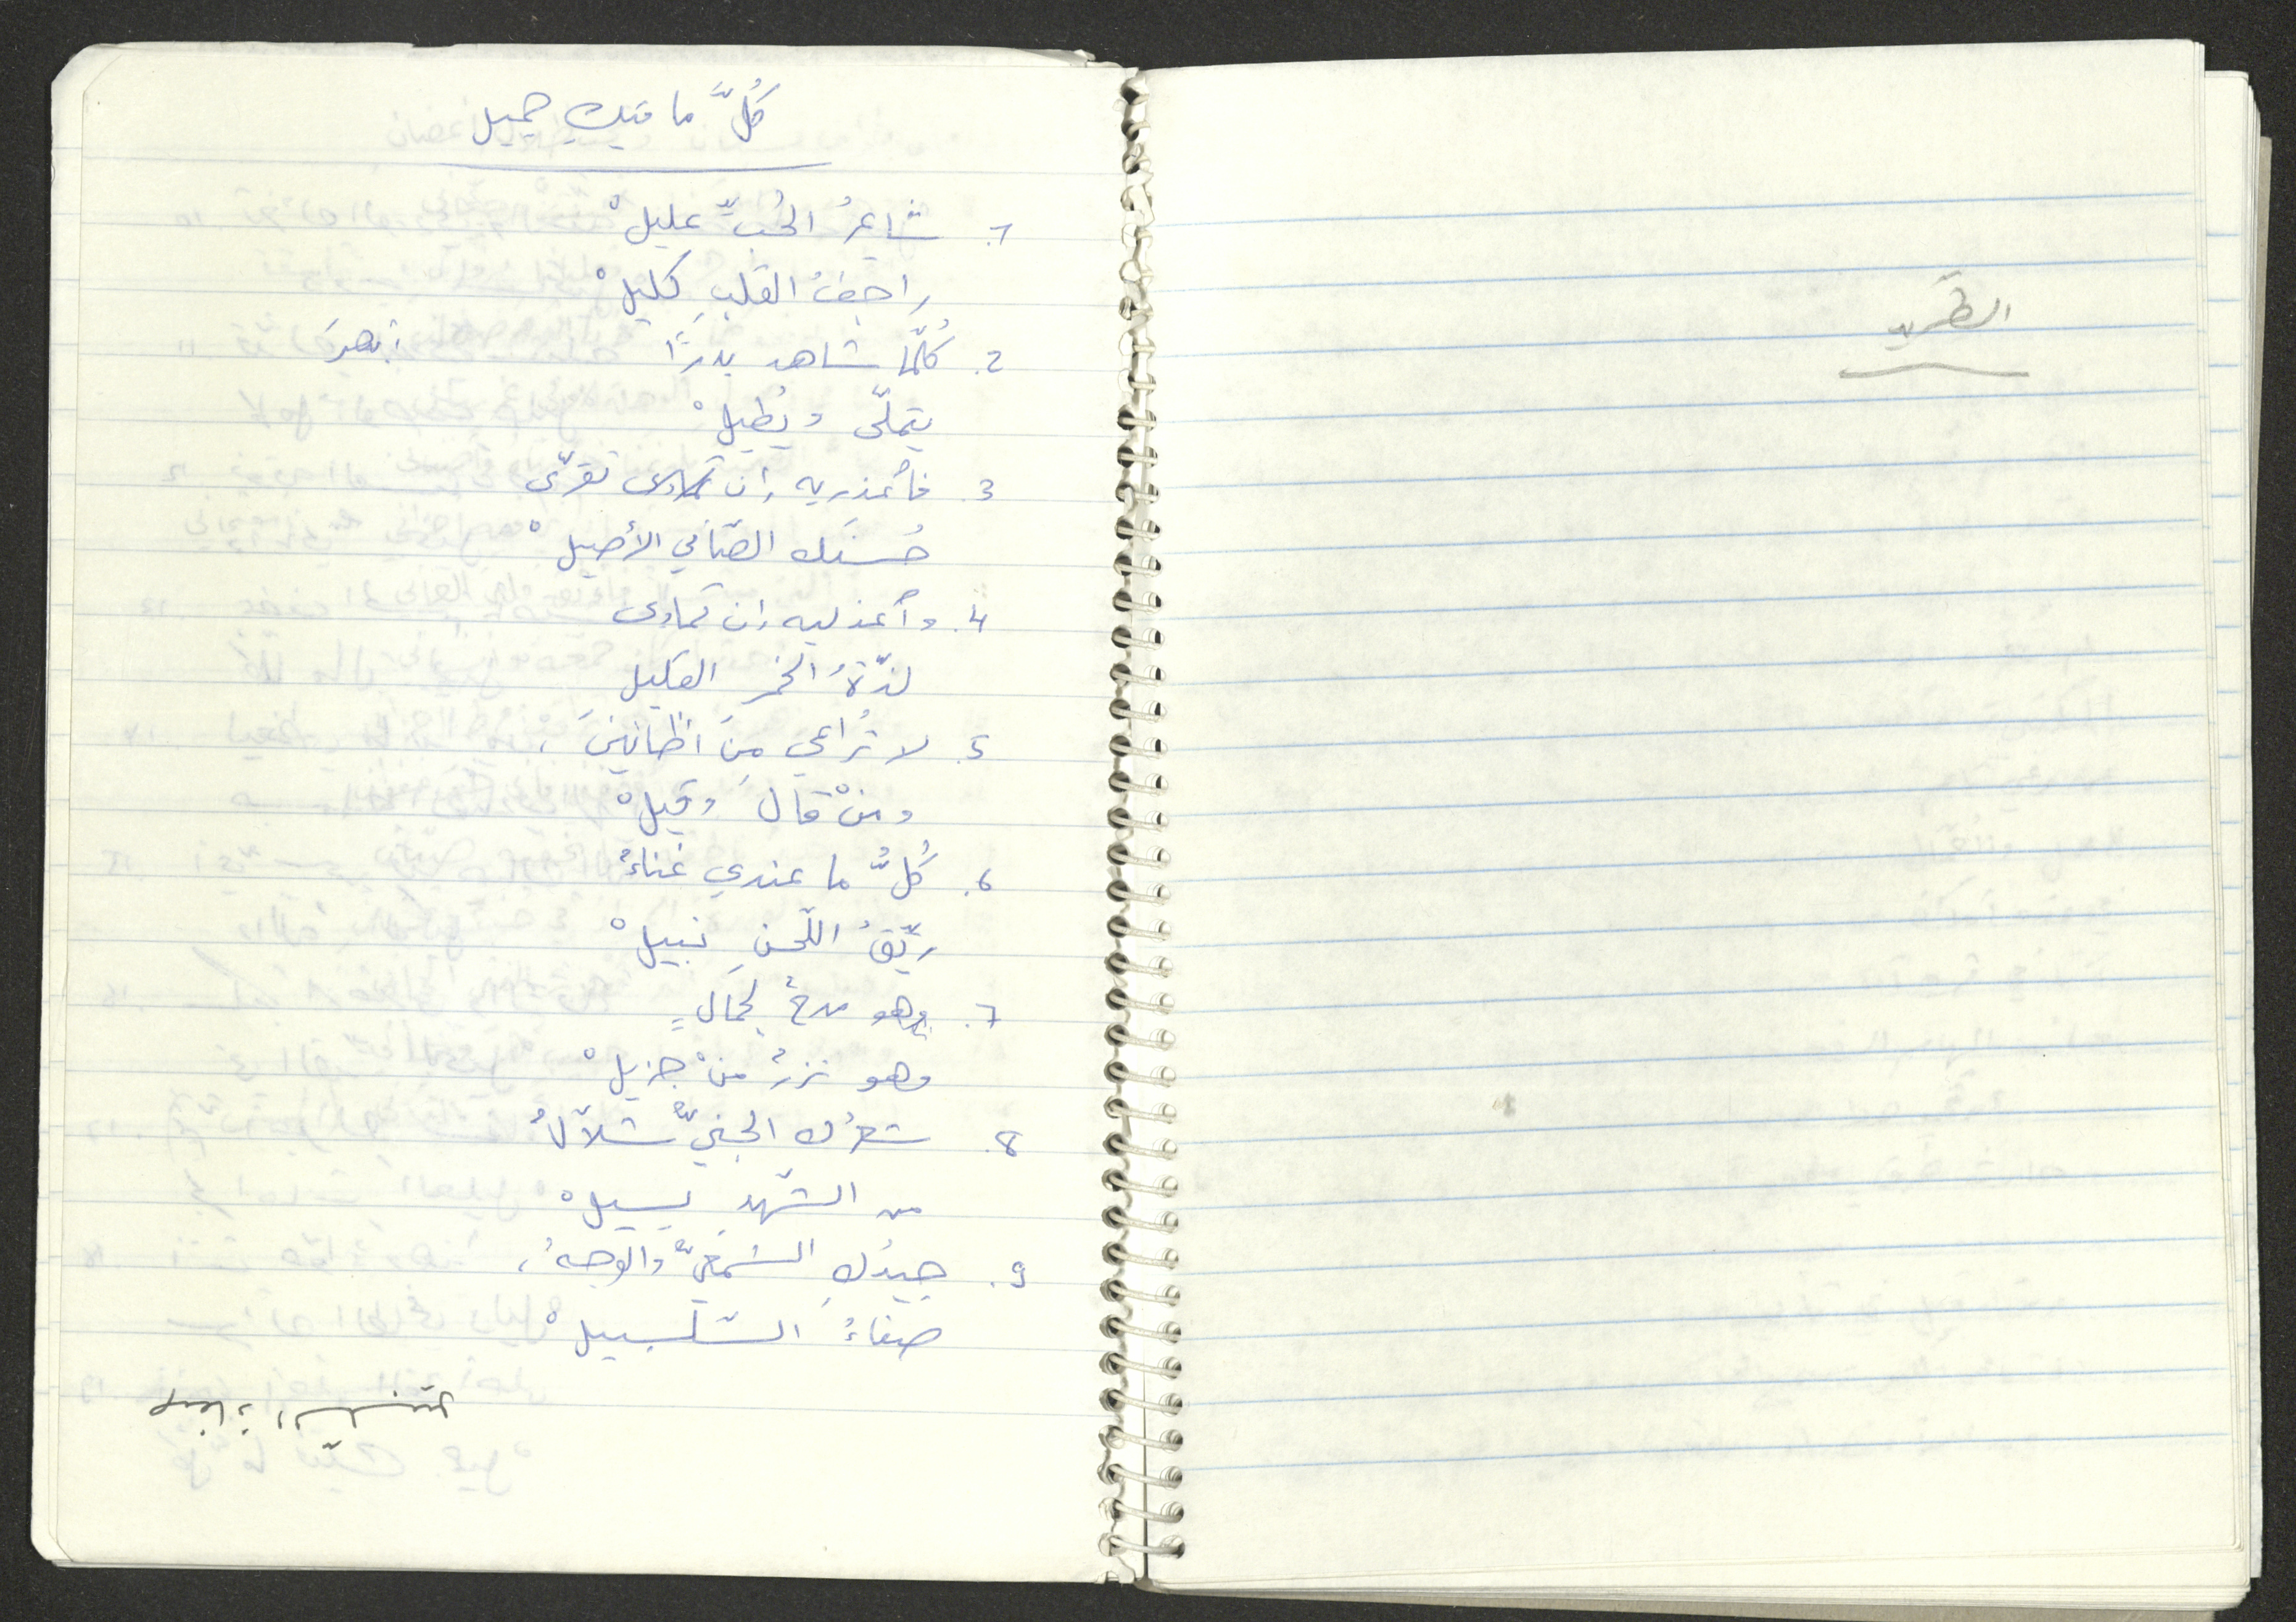 الطريد
كُلُّ ما فيكِ جميل
1. شاعرُ الحُبِّ عليلْ
راجفُ القلبِ كليلْ
2. كُلَّما شاهد بدرًا
يتملّى ويُطيلْ
3. فأعذريه إن تقرّى
حُسنَك الصّافي الأصيلْ
4. وأعذليه إن تمادى
لذّةُ الخمر القليل
5. لا تُراعي مِنَ أظانينَ،
ومنْ قالَ وقيلْ
6. كُلُّ ما عندي غناءٌ
ريّقُ اللّحنِ نبيلْ
7. وهو مدحٌ لجمالٍ
وهو نزرٌ منْ جزيلْ
8. شعرُك الجنيُّ شلاّلٌ
من الشّهدِ يسيلْ
9. جيدُكِ الشّمعيُّ والوجهُ،
صفاءُ السّلسبيلْ